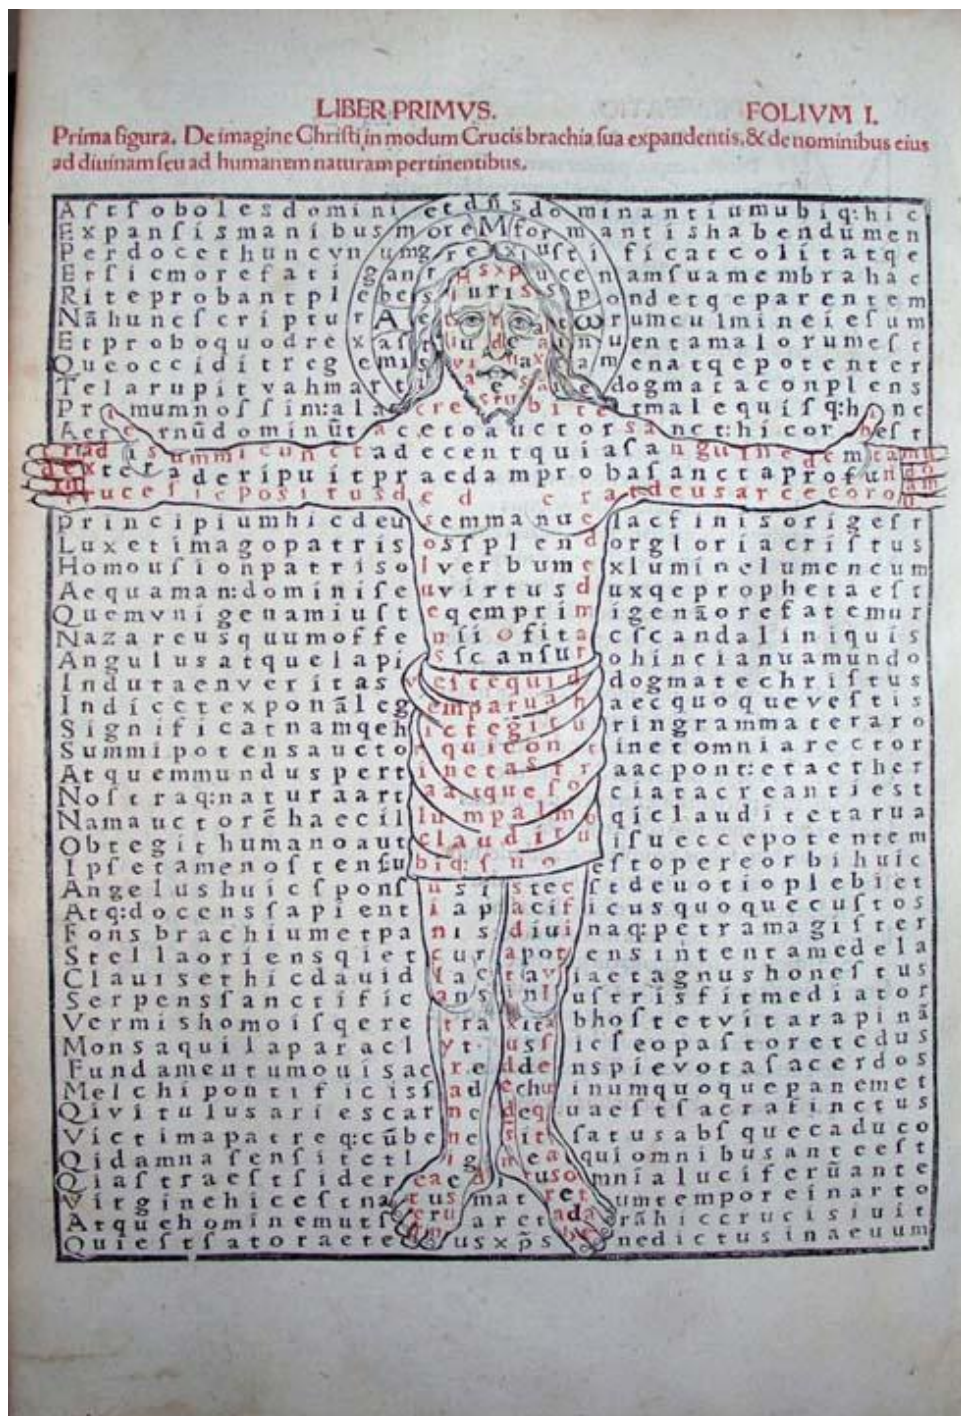 LIBER PRIMVS. FOLIVM I.
Prima figura. De imagine Chriſti, in modum Crucis brachia ſua expandentis, & de nominibus eius
ad diuinam ſeu ad humanem naturam pertinentibus.
Aſtſobolesdominietdñsdominantiumubiq:hic
ExpanſismanibusmoreMformantishabendumen
Perdocethuncvnumgrexiuſtificatcolitatqe
Etſicmorefatiganrpsxpucenamſuamembrahae
Riteprobantplebersiurisspondetqeparentem
Nāhuncſcriptur rumculmineieſum
Etproboquodrexaſt uentamalorumeſt
Queocciditregemis amenatqepotenter
Telarupitvahmarti dogmataconplens
Primumnoſſim:ala creſtubite rmalequiſq:hinc
Aeternūdominūtacetoauctorsanct:hicorheſt
riadasummicunctadecentquiaſanguinedemtamu
dexteraderipuitpraedamprobaſanctaprofun
trucefiepoſitusdederatdeusarcecoron
Principiumhicdeusemmanuelacfinisorigeſt
Luxetimagopatrisosſplendorgloriacriſtus
Homouſionpatrisolverbumexluminelumencum
Aequaman:dominiſeuvirtusduxqepropheta eſt
Quemvnigenamiuſteqemprimigenāorefatemur
Nazareusquumoffenſioſitacſcandaliniquis
Angulusatquelapisſcanſurohincianuamundo
Indutaenveritasveſtequiddogmatechriſtus
Indicetexponāleg emparuahaecquoqueveſtis
Significatnamqehictegituringrammateraro
Summipotensauctorquicontinetomniarector
Atquemmunduspertinetastraacpont:etaether
Noſtraq:naturaartaatqueſociatacreantiest
Namauctorēhaecillumpalmoqiclauditetarua
Obtegithumanoautclauditu iſueccepotentem
Ipſetamenoſtenſubiq:ſuoeſtopereorbihuic
Angelushuicſponſusisteeſtdeuotioplebiet
Atq:docensſapientiapacificusquoquecuſtos
Fonsbrachiumetpanisdiuinaq:petramagiſter
Stellaoriensqietcurapotensintentamedela
Clauisethicdauidfactaviaetagnushoneſtus
Serpensſanctificansinluſtrisfitmediator
Vermishomoiſqere traxitabhoſtetvitarapinā
Monsaquilaparaclyt:usſicſeopaſtoretedus
Fundamentumouisacreddenspievotaſacerdos
Melchipontificisſadechuinumquoquepanemet
Qivitulusariescarnedequaeſtſacratinctus
Victimapatreq:cūbenesitſatusabſquecaduco
Qidamnaſenſitetligneaquiomnibusanteeſt
Qiaſtraeſtſidercaeditusomnialuciferūante
Virginehiceſtnatusmatretumtemporeinarto
Atquehominemutſ aretadarāhiccrucisiuit
Quieſtſatoraeternusxp̄sbenedictusinaeuum